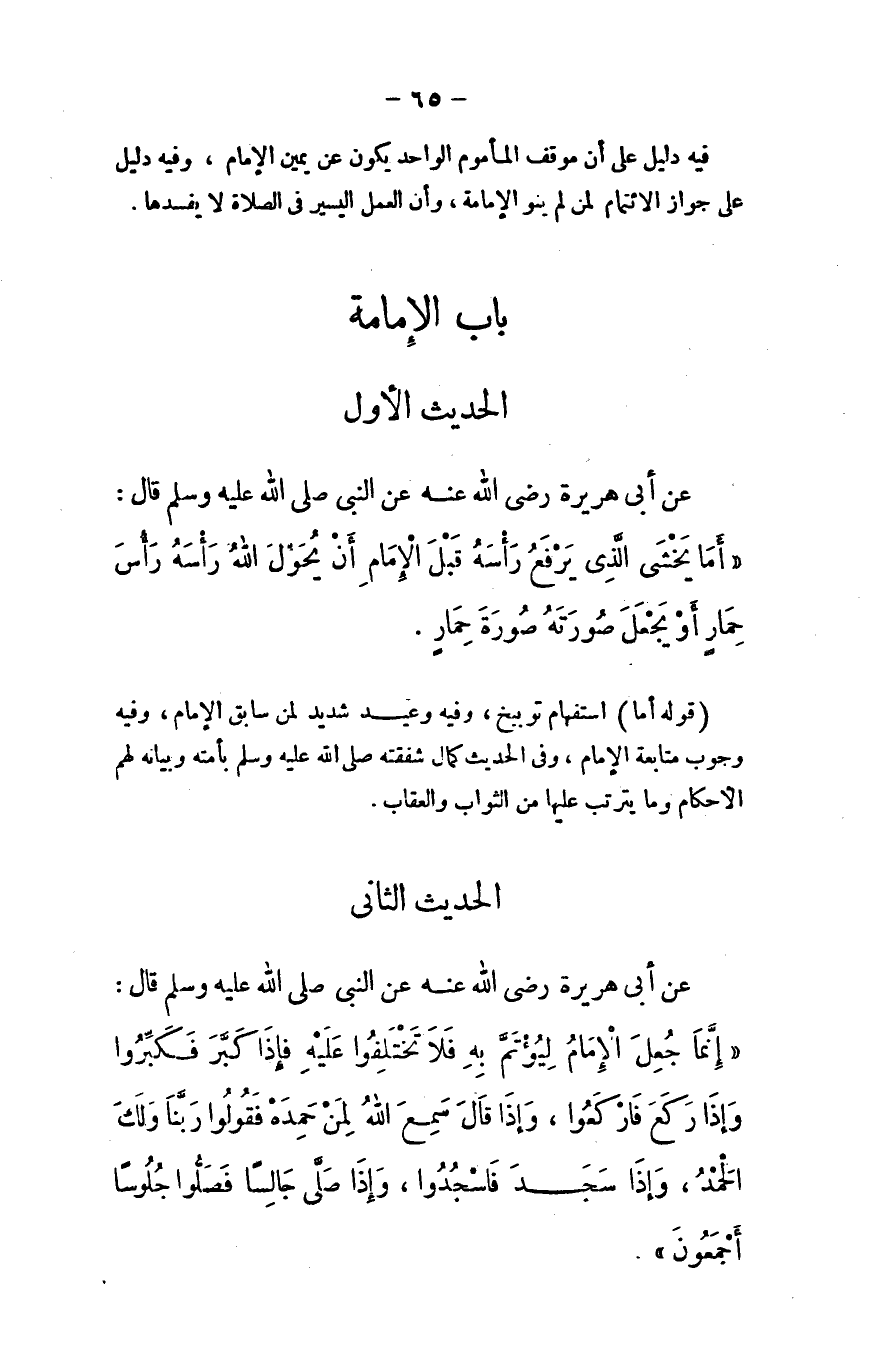 — ٦٥ —
فيه دليل على أن موقف المأموم الواحد يكون عن يمين الإمام ، وفيه دليل
على جواز الائتمام لمن لم ينو الإمامة ، وأن العمل اليسير فى الصلاة لا يفسدها .
باب الإمامة
الحديث الأول
عن أبى هريرة رضى الله عنه عن النبى صلى الله عليه وسلم قال :
« أَمَا يَخْشَى الَّذِى يَرْفَعُ رَأْسَهُ قَبْلَ الْإِمَامِ أَنْ يُحَوِّلَ اللهُ رَأْسَهُ رَأْسَ
حِمَارٍ أَوْ يَجْعَلَ صُورَتَهُ صُورَةَ حِمَارٍ .
( قوله أما ) استفهام توبيخ ، وفيه وعيد شديد لمن سابق الإمام ، وفيه
وجوب متابعة الإمام ، وفى الحديث كمال شفقته صلى الله عليه وسلم بأمته وبيانه لهم
الأحكام وما يترتب عليها من الثواب والعقاب .
الحديث الثانى
عن أبى هريرة رضى الله عنه عن النبى صلى الله عليه وسلم قال :
« إِنَّمَا جُعِلَ الْإِمَامُ لِيُؤْتَمَّ بِهِ فَلَا تَخْتَلِفُوا عَلَيْهِ فإِذَا كَبَّرَ فَكَبِّرُوا
وَإِذَا رَكَعَ فَارْكَعُوا ، وَإِذَا قَالَ سَمِعَ اللهُ لِمَنْ حَمِدَهْ فَقُولُوا رَبَّنَا وَلَكَ
الْحَمْدُ ، وَإِذَا سَجَدَ فَاسْجُدُوا ، وَإِذَا صَلَّى جَالِسًا فَصَلُّوا جُلُوسًا
أَجْمَعُونَ » .